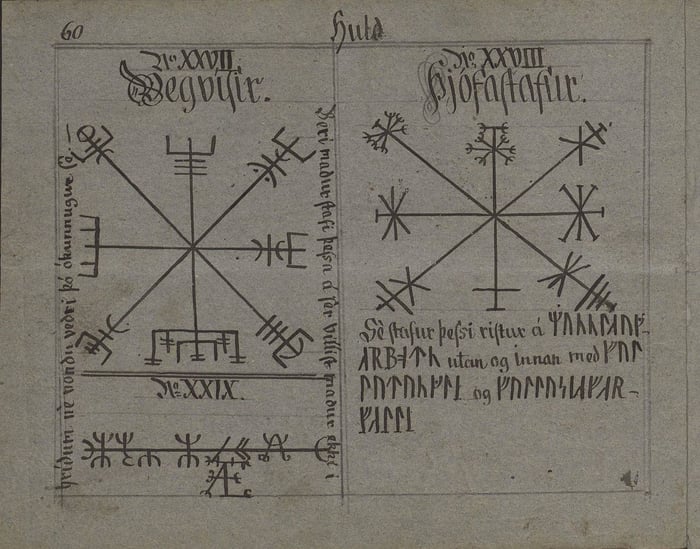 60
Huld
No. XXVII.
Vegvísir.
Beri maður stafi þessa á sér villist maður ekki í
hríðum né vondu veðri þó ókunnugur sé.
No. XXIX.
No. XXVIII.
Þjófastafur.
Sé stafur þessi ristur á
utan og innan með
og